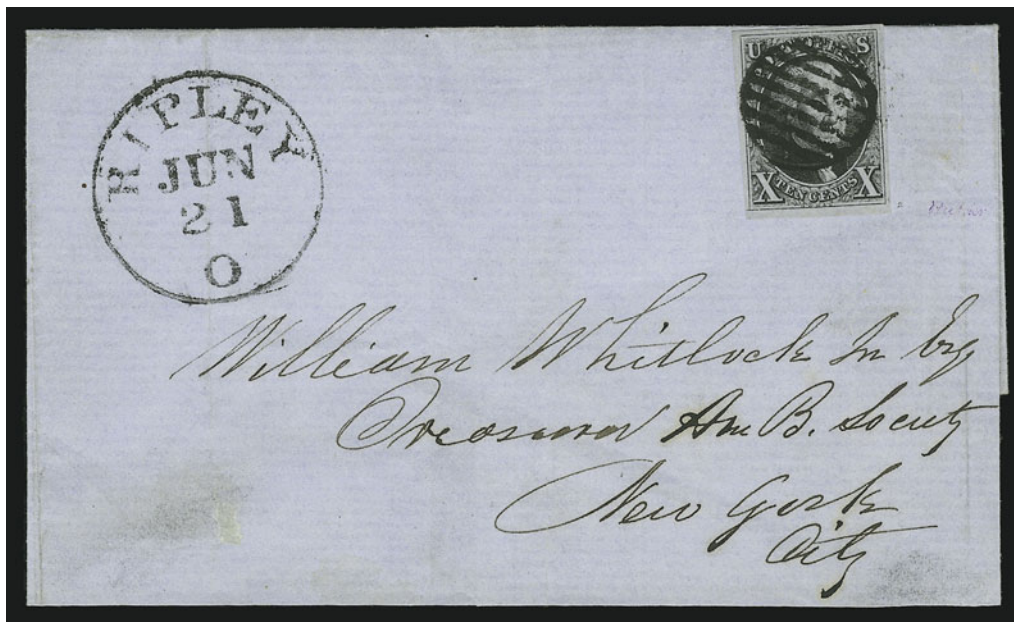 RIPLEY
JUN
21
O
U S
X TEN CENTS X
William Whitlock Jn Esq
Treasurer Am B. Society
New York
City